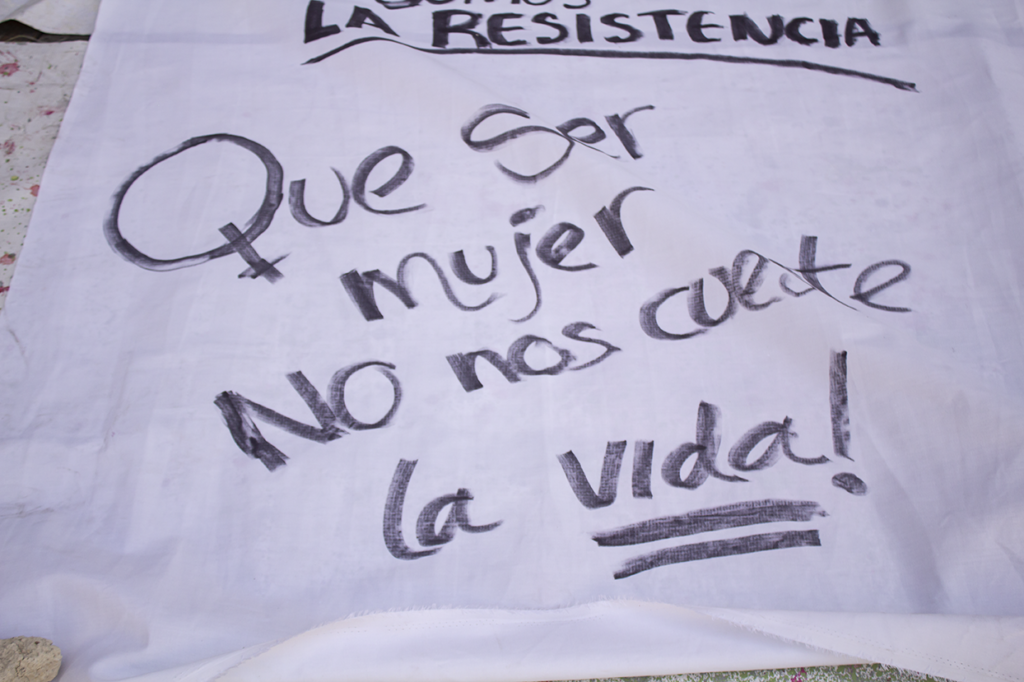 Somos
LA RESISTENCIA
Que ser
mujer
NO nos cueste
la vida!